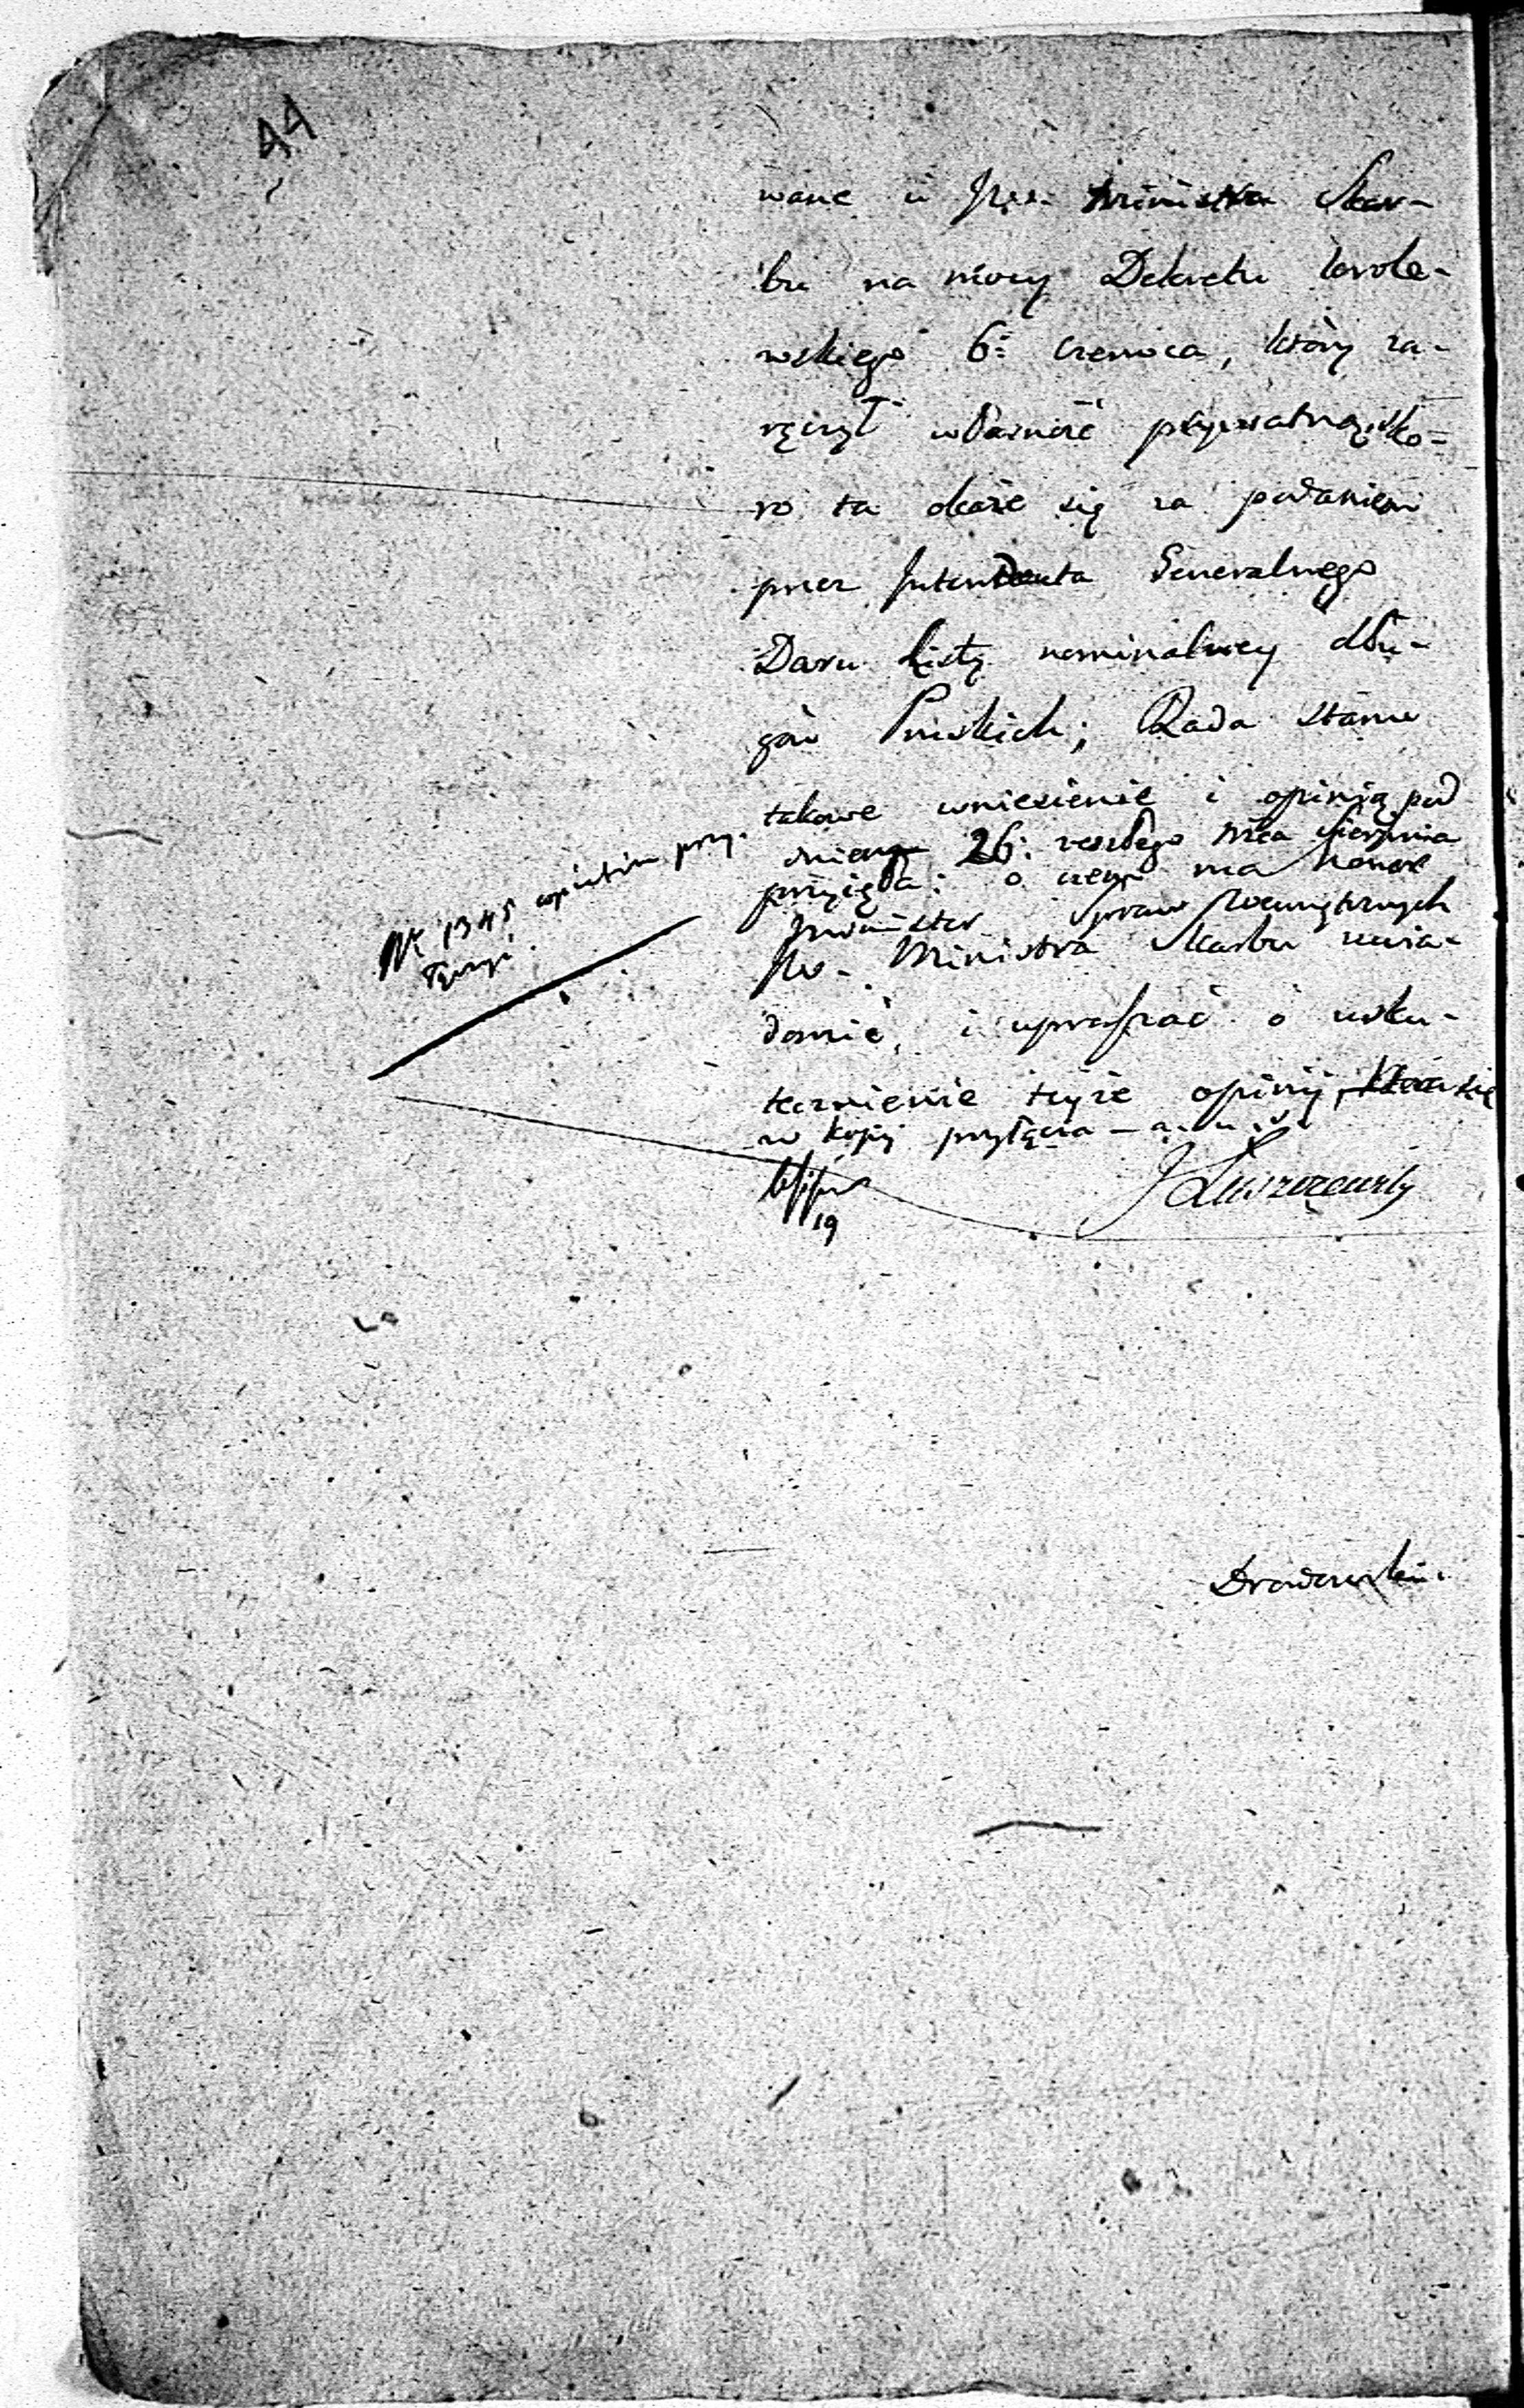 44
wane u JWo. Ministra Skar-
bu na mocy Dekretu krole-
wskiego 6º czerwca, który za-
ręczył własność prywatną, sko-
ro ta okaże się za podaniem
przez Intendenta Generalnego
Daru listy nominalney dłu-
gów Pruskich; Rada stanu
takowe wniesienie i opinią pod
dniem 26. zeszłego mca sierpnia
przyięła: o czem ma honor
Minister Spraw Wewnętrznych
JW. Ministra Skarbu uwia-
domić, i upraszać o usku-
tecznienie teyże opinij, która się
w kopij przyłącza
Nr 1345 przy-
łączyć
19
J Łuszczewski